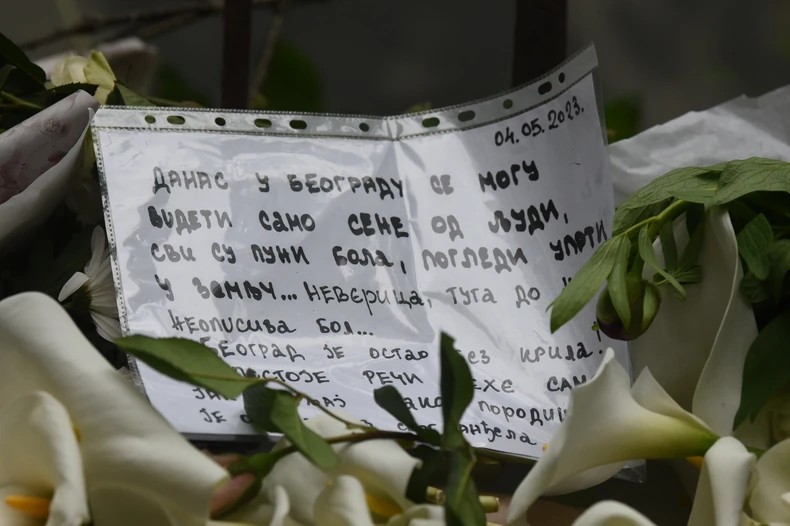 04.05.2023.
ДАНАС У БЕОГРАДУ СЕ МОГУ
ВИДЕТИ САМО СЕНЕ ОД ЉУДИ,
СВИ СУ ПУНИ БОЛА, ПОГЛЕДИ УПРТИ
У ЗЕМЉУ... НЕВЕРИЦА, ТУГА ДО
НЕОПИСИВА БОЛ...
БЕОГРАД ЈЕ ОСТАО БЕЗ КРИЛА!
РЕЧИ САМ
ЈЕ АНЂЕЛА